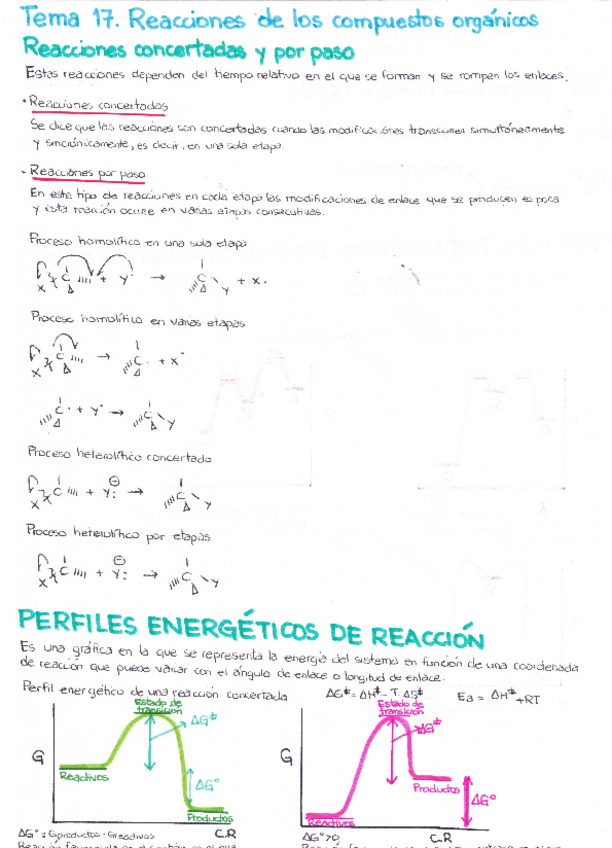 Tema 17. Reacciones de los compuestos orgánicos
Reacciones concertadas y por paso
Estas reacciones dependen del tiempo relativo en el que se forman y se rompen los enlaces.
· Reacciones concertadas
Se dice que las reacciones son concertadas cuando las modificaciones transcurren simultáneamente
y sincrónicamente, es decir, en una sola etapa
- Reacciones por paso
En este tipo de reacciones en cada etapa las modificaciones de enlace que se producen es poca
y esta reacción ocurre en varias etapas consecutivas.
Proceso homolítico en una sola etapa
X C + Y· → C Y + X·
Proceso homolítico en varias etapas
X C → C· + X·
C· + Y· → C Y
Proceso heterolítico concertado
X C + Y:⊖ → C Y
Proceso heterolítico por etapas
X C + Y:⊖ → C Y
PERFILES ENERGÉTICOS DE REACCIÓN
Es una gráfica en la que se representa la energía del sistema en función de una coordenada
de reacción que puede variar con el ángulo de enlace o longitud de enlace.
Perfil energético de una reacción concertada
ΔG‡ = ΔH‡ - T. ΔS‡
Ea = ΔH‡ + RT
Estado de
transición
ΔG‡
G
Reactivos
ΔG°
Productos
C.R
Estado de
transición
ΔG‡
G
Productos
ΔG°
Reactivos
C.R
ΔG° = Gproductos - Greactivos
ΔG° > 0